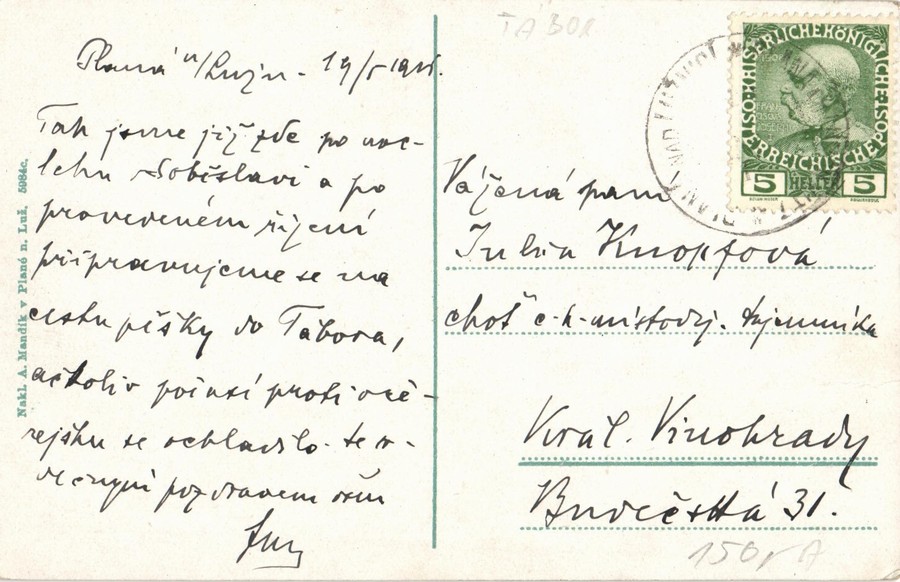 TÁBOR
Planá n/Lužn. - 19/5 191
Tak jsme již zde po noc-
lehu v Soběslavi a po
provedeném řízení
připravujeme se na
cestu pěšky do Tábora,
ačkoliv počasí proti vče-
rejšku se ochladilo. Se sr-
dečným pozdravem všem
Nakl. A. Mandík v Plané n. Luž. 5984c.
KAISERLICHE KÖNIGLICHE ÖSTERREICHISCHE POST
5 HELLER 5
PLANÁ NAD LUŽNICÍ
Vážená paní
Julia Knopfová
choť c. k. místodrž. tajemníka
Král. Vinohrady
Budečská 31.
150,-